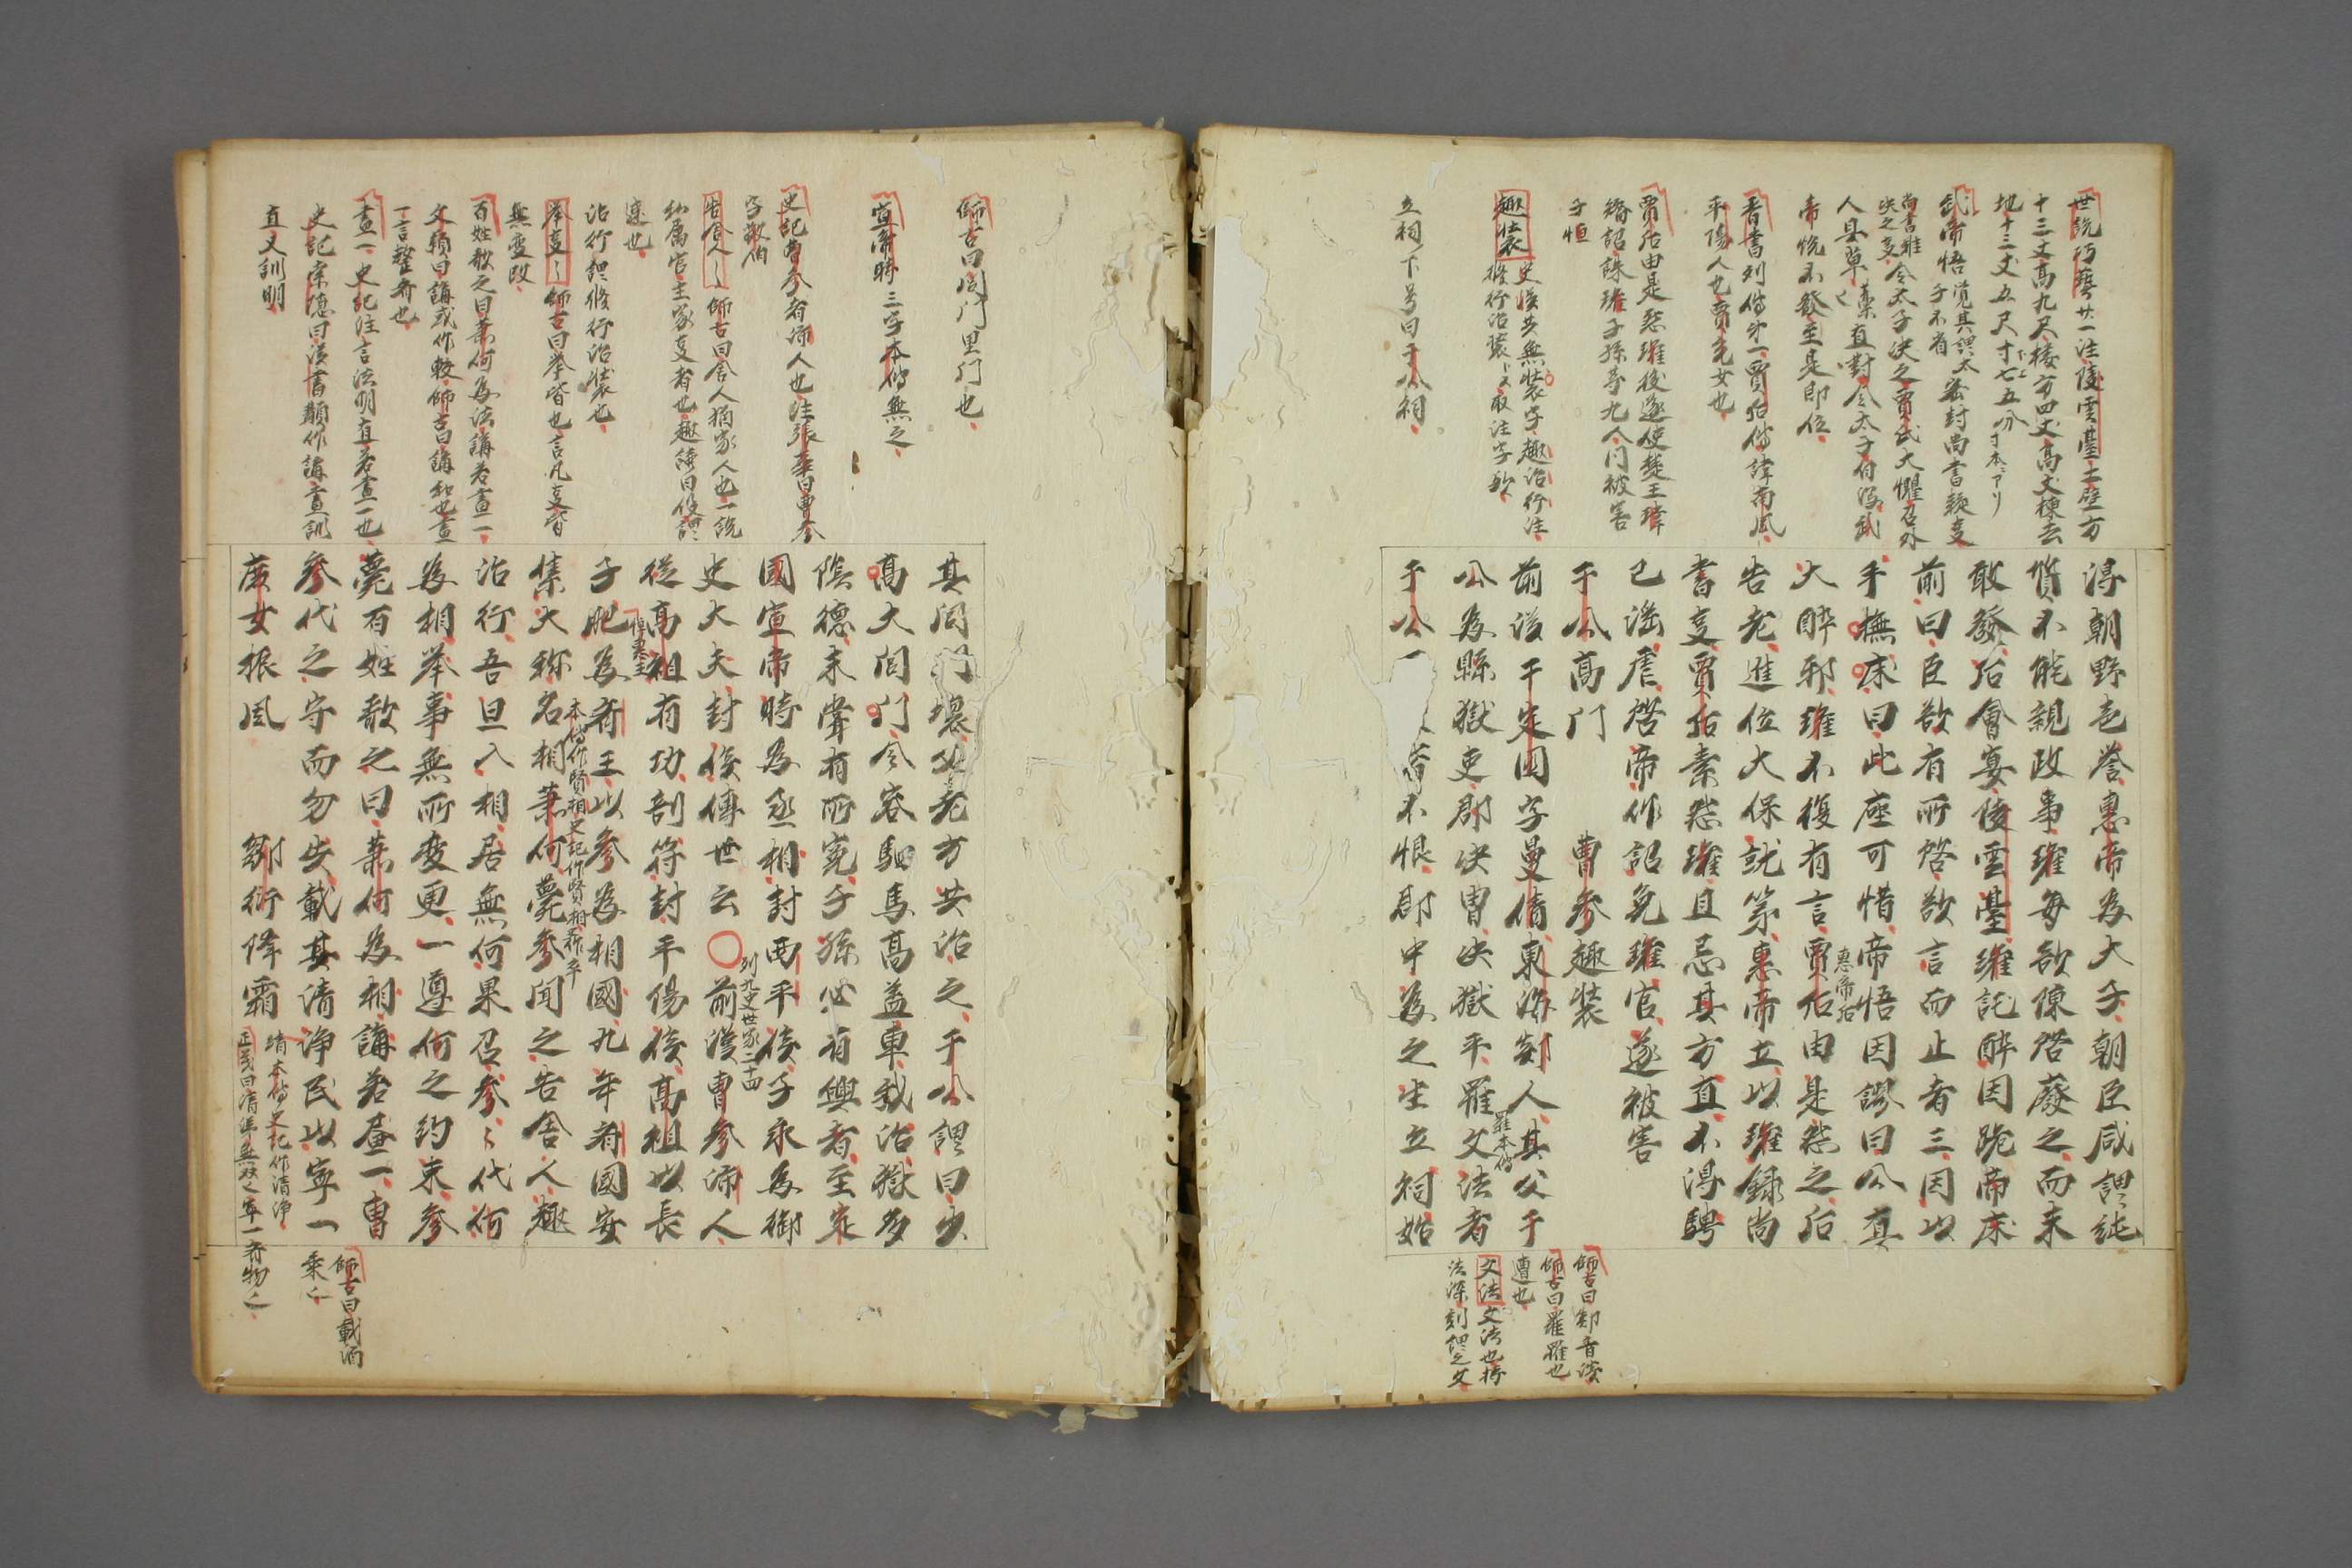 世説巧藝廿一注陵雲臺上壁方
十三丈高九尺棲方四丈高丈棟去
地十三丈五尺寸七五分
武帝悟
帝悦不發至是即位
晋書列傳第一賈后傳諱南風
平陽人也賈充女也
賈后由是怨瓘後遂使楚王瑋
矯詔誅瓘子孫等九人同被害
子恒
趣装 史漢共無装字趣治行注
立祠下号曰于公祠
得朝野之誉惠帝為大子朝臣咸謂純
質不能親政事瓘每欲陳啓廢之而未
敢發后會宴陵雲臺瓘託醉因跪帝床
前曰臣欲有所啓欲言而止者三因以
手撫床曰此座可惜帝悟因謬曰公真
大醉邪瓘不復有言賈后由是怨之后
惠帝后
告老進位大保就第惠帝立以瓘録尚
書事賈后素怨瓘且忌其方直不得騁
己滛虐啓帝作詔免瓘官遂被害
于公高門 曹参趣装
前漢于定国字曼倩東海郯人其父于
公為縣獄吏郡決曹決獄平羅文法者
羅本傳
于公
不恨郡中為之生立祠始
師古曰郯音談
師古曰羅罹也
遭也
文法 文法也持
法深刻謂之文
師古曰閭門里門也
宣帝時三字本傳無之
史記曹参者沛人也注張華曰曹参
字敬伯
告舎人 師古曰舎人猶家人也一説
私属官主家事者也趣
速也
治行謂修行治装也
挙事 師古曰挙皆也言凡事皆
無変改
百姓歌之曰蕭何為法講若畫一
文頴曰講或作較師古曰講和也畫
一言整斉也
畫一 史記注言法明直若畫一也
史記索隠曰漢書顜作講畫訓
直又訓明
其閭門壊父老方共治之于公謂曰少
高大閭門令容駟馬高盖車我治獄多
陰德未嘗有所寃子孫必有興者至定
國宣帝時為丞相封西平侯子永為御
史大夫封侯傳世云○前漢曹参沛人
列九史世家二十四
從高祖有功剖符封平陽侯高祖以長
子肥為斉王以参為相國九年斉國安
悼恵王
集大稱名相蕭何薨参聞之告舎人趣
本傳作賢相史記作賢相
治行吾且入相居無何果召参〻代何
為相挙事無所變更一遵何之約束参
薨百姓歌之曰蕭何為相講若畫一曹
参代之守而勿失載其清浄民以寧一
師古曰載猶
乗也
庶女振風 鄒衍降霜
清本傳史記作清浄